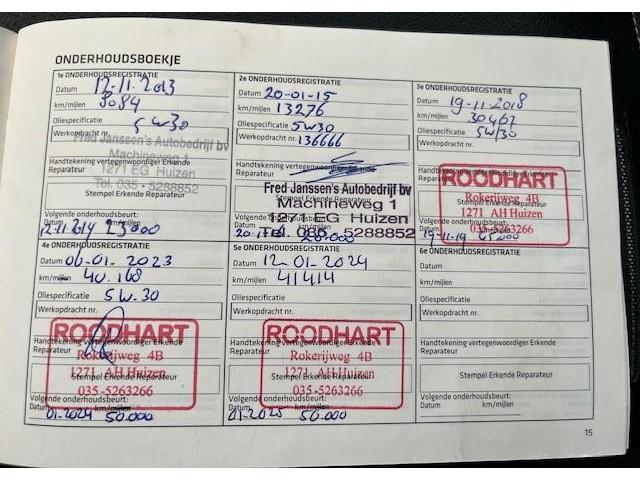 ONDERHOUDSBOEKJE
1e ONDERHOUDSREGISTRATIE
Datum 12.11.2013
km/mijlen 8084
Oliespecificatie 5W30
Werkopdracht nr.
Fred Janssen's Autobedrijf bv
Machineweg 1
1271 EG Huizen
Tel. 035 - 5288852
Handtekening vertegenwoordiger Erkende
Reparateur
Stempel Erkende Reparateur
Volgende onderhoudsbeurt:
Datum km/mijlen
23000
2e ONDERHOUDSREGISTRATIE
Datum 20-01-15
km/mijlen 13276
Oliespecificatie 5W30
Werkopdracht nr. 136666
Handtekening vertegenwoordiger Erkende
Reparateur
Fred Janssen's Autobedrijf bv
Machineweg 1
1271 EG Huizen
Tel. 035 - 5288852
Volgende onderhoudsbeurt:
Datum
3e ONDERHOUDSREGISTRATIE
Datum 19-11-2018
km/mijlen 30467
Oliespecificatie 5W/30
Werkopdracht nr.
Handtekening vertegenwoordiger Erkende
Reparateur
ROODHART
Rokerijweg 4B
1271 AH Huizen
035-5263266
Volgende onderhoudsbeurt:
Datum km/mijlen
19-11-19
4e ONDERHOUDSREGISTRATIE
Datum 06-01-2023
km/mijlen 40.168
Oliespecificatie 5W.30
Werkopdracht nr.
ROODHART
Handtekening vertegenwoordiger Erkende
Reparateur
Rokerijweg 4B
1271 AH Huizen
Stempel Erkende Reparateur
035-5263266
Volgende onderhoudsbeurt:
Datum km/mijlen
01-2024 50.000
5e ONDERHOUDSREGISTRATIE
Datum 12-01-2024
km/mijlen 41414
Oliespecificatie
Werkopdracht nr.
ROODHART
Handtekening vertegenwoordiger Erkende
Reparateur
Rokerijweg 4B
1271 AH Huizen
Stempel Erkende Reparateur
035-5263266
Volgende onderhoudsbeurt:
Datum km/mijlen
01-2025 50.000
6e ONDERHOUDSREGISTRATIE
Datum
km/mijlen
Oliespecificatie
Werkopdracht nr.
Handtekening vertegenwoordiger Erkende
Reparateur
Stempel Erkende Reparateur
Volgende onderhoudsbeurt:
Datum km/mijlen
15